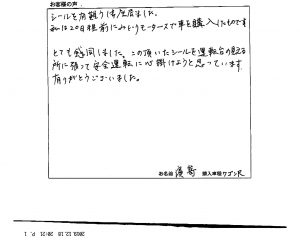 お客様の声:
シールを有難う御座居ました。
私は20日程前にみどりモータースで車を購入したものです
とても感同しました、この頂いたシールを運転台の見る
所に張って安全運転に心掛けようと思っています。
有りがとうございました。
お名前 購入車種 ワゴンR